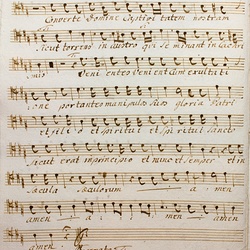 Converte Domine Captivitatem nostram
sicut torrens in austro qui seminant in lacri
mis Venientes venient cum exultati
one portantes manipulos suos gloria Patri
et filio et spiritui et spiritui sancto
sicut erat in principio et nunc et semper et in
saecula saeculorum a men
amen a men amen
amen